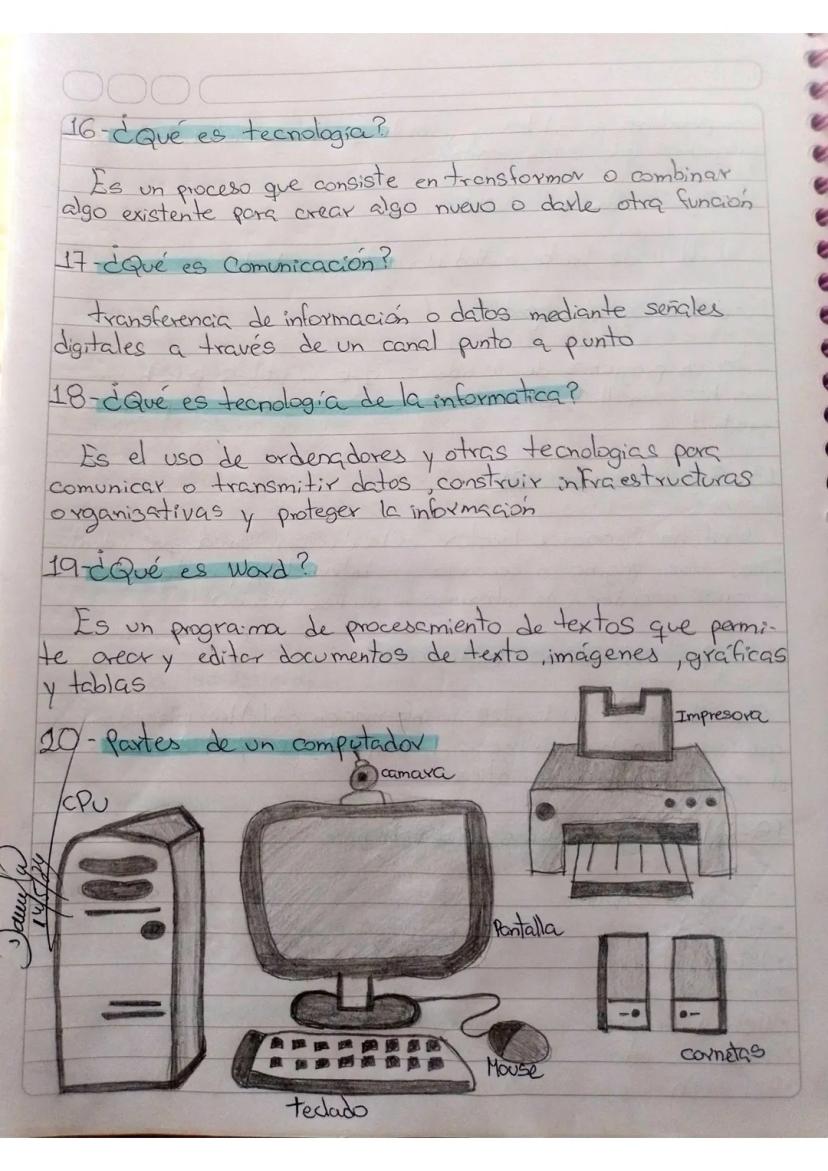 16-¿Qué es tecnología?
Es un proceso que consiste en transformar o combinar
algo existente para crear algo nuevo o darle otra función
17-¿Qué es Comunicación?
transferencia de información o datos mediante señales
digitales a través de un canal punto a punto
18-¿Qué es tecnología de la informatica?
Es el uso de ordenadores y otras tecnologias para
comunicar o transmitir datos, construir infraestructuras
organizativas y proteger la información
19-¿Qué es Word?
Es un programa de procesamiento de textos que permi-
te crear y editar documentos de texto, imágenes, gráficas
y tablas
20-Partes de un computador
Impresora
camara
CPU
Pantalla
Mouse
cornetas
teclado
14/5/24